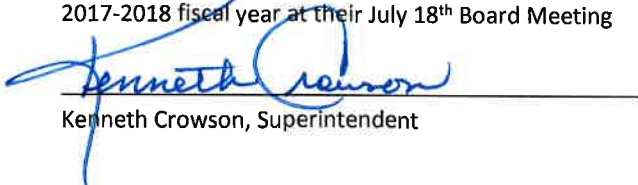 2017-2018 fiscal year at their July 18th Board Meeting
Kenneth Crowson
Kenneth Crowson, Superintendent